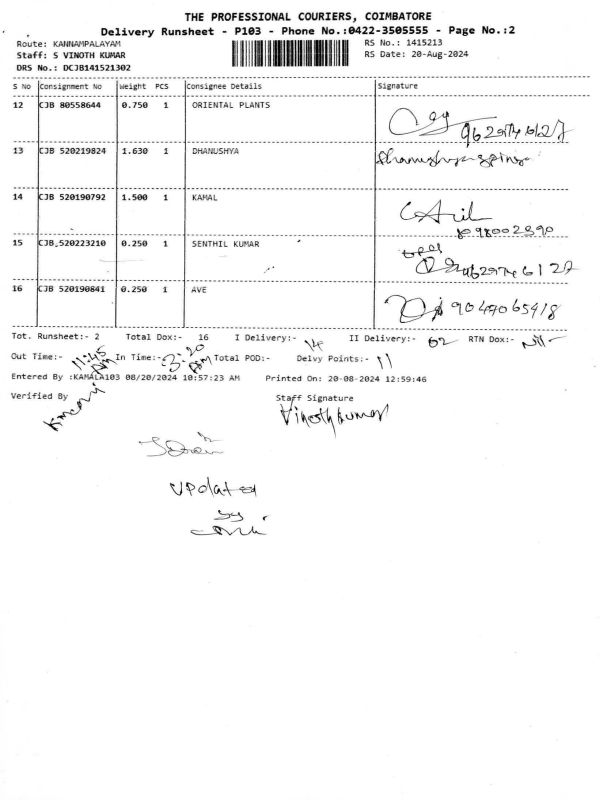 THE PROFESSIONAL COURIERS, COIMBATORE
Delivery Runsheet - P103 - Phone No.:0422-3505555 - Page No.:2
Route: KANNAMPALAYAM
RS No.: 1415213
Staff: S VINOTH KUMAR
RS Date: 20-Aug-2024
DRS No.: DCJB141521302
S No Consignment No Weight PCS Consignee Details Signature
12 CJB 80558644 0.750 1 ORIENTAL PLANTS
9629746127
13 CJB 520219824 1.630 1 DHANUSHYA
14 CJB 520190792 1.500 1 KAMAL
15 CJB 520223210 0.250 1 SENTHIL KUMAR
9629746127
16 CJB 520190841 0.250 1 AVE
9047065418
Tot. Runsheet:- 2 Total Dox:- 16 I Delivery:- 14 II Delivery:- 02 RTN Dox:- Nil
Out Time:- 11:45 AM In Time:- 3:20 PM Total POD:- Delvy Points:- 11
Entered By :KAMALA103 08/20/2024 10:57:23 AM Printed On: 20-08-2024 12:59:46
Verified By Staff Signature
Vinothkumar
Updated
by